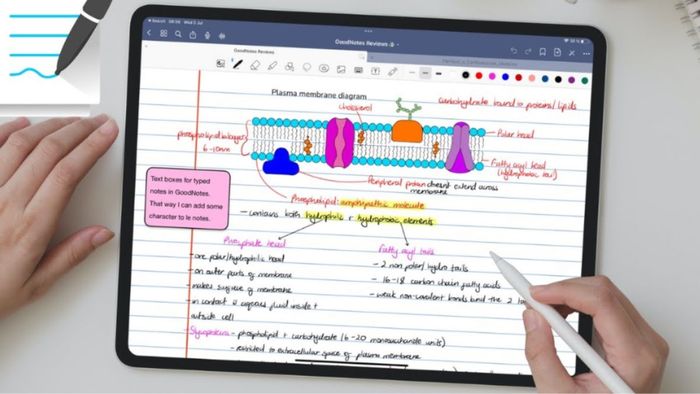 Search 08:38 Wed 5 Jul
GoodNotes Reviews
GoodNotes Reviews
Plasma membrane diagram
cholesterol
carbohydrate bound to proteins/lipids
Polar head
phospholipid bilayer
6-10nm
Fatty acyl tail
(hydrophobic tail)
Peripheral protein doesnt extend across
membrane
Text boxes for typed
notes in GoodNotes.
That way I can add some
character to le notes.
Phospholipid: amphipathic molecule
- contains both hydrophilic + hydrophobic elements
Phosphate head
- one polar/hydrophilic head
- on outer parts of membrane
- makes surface of membrane
- in contact c aqueous fluid inside +
outside cell
Fatty acyl tails
- 2 non polar/hydro tails
- 16-18 carbon chain fatty acids
- weak non-covalent bonds bind the 2
- phospholipid + carbohydrate (6-20 monosaccharide units)
- restricted to extracellular space of plasma membrane